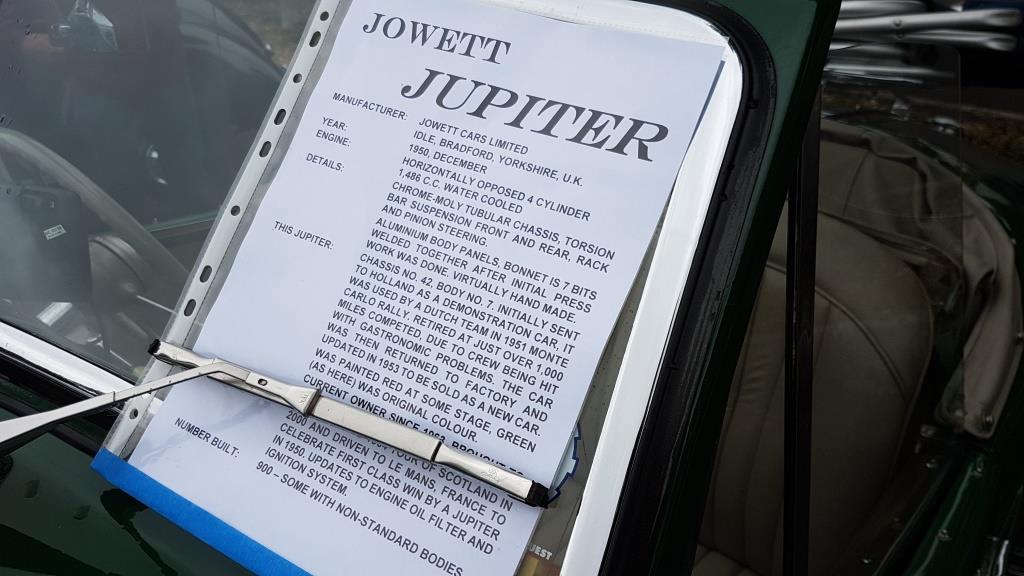 JOWETT
JUPITER
MANUFACTURER: JOWETT CARS LIMITED
IDLE, BRADFORD, YORKSHIRE, U.K.
YEAR: 1950, DECEMBER
ENGINE: HORIZONTALLY OPPOSED 4 CYLINDER
1,486 C.C. WATER COOLED
DETAILS: CHROME-MOLY TUBULAR CHASSIS, TORSION
BAR SUSPENSION FRONT AND REAR, RACK
AND PINION STEERING.
ALUMINIUM BODY PANELS, BONNET IS 7 BITS
WELDED TOGETHER AFTER INITIAL PRESS
WORK WAS DONE. VIRTUALLY HAND MADE.
THIS JUPITER: CHASSIS NO. 42, BODY NO. 7. INITIALLY SENT
TO HOLLAND AS A DEMONSTRATION CAR, IT
WAS USED BY A DUTCH TEAM IN 1951 MONTE
CARLO RALLY. RETIRED AT JUST OVER 1,000
MILES COMPETED, DUE TO CREW BEING HIT
WITH GASTRONOMIC PROBLEMS. THE CAR
WAS THEN RETURNED TO FACTORY AND
UPDATED IN 1953 TO BE SOLD AS A NEW CAR.
WAS PAINTED RED AT SOME STAGE, GREEN
(AS HERE) WAS ORIGINAL COLOUR.
CURRENT OWNER SINCE BROUGHT TO
OF SCOTLAND IN
2000 AND DRIVEN TO LE MANS, FRANCE TO
CELEBRATE FIRST CLASS WIN BY A JUPITER
IN 1950. UPDATES TO ENGINE OIL FILTER AND
IGNITION SYSTEM.
NUMBER BUILT: 900 – SOME WITH NON-STANDARD BODIES.